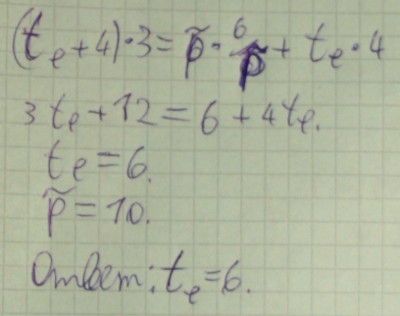 (t_e + 4) · 3 = p̃ · 6/p̃ + t_e · 4
3t_e + 12 = 6 + 4t_e.
t_e = 6.
p̃ = 10.
Ответ: t_e = 6.